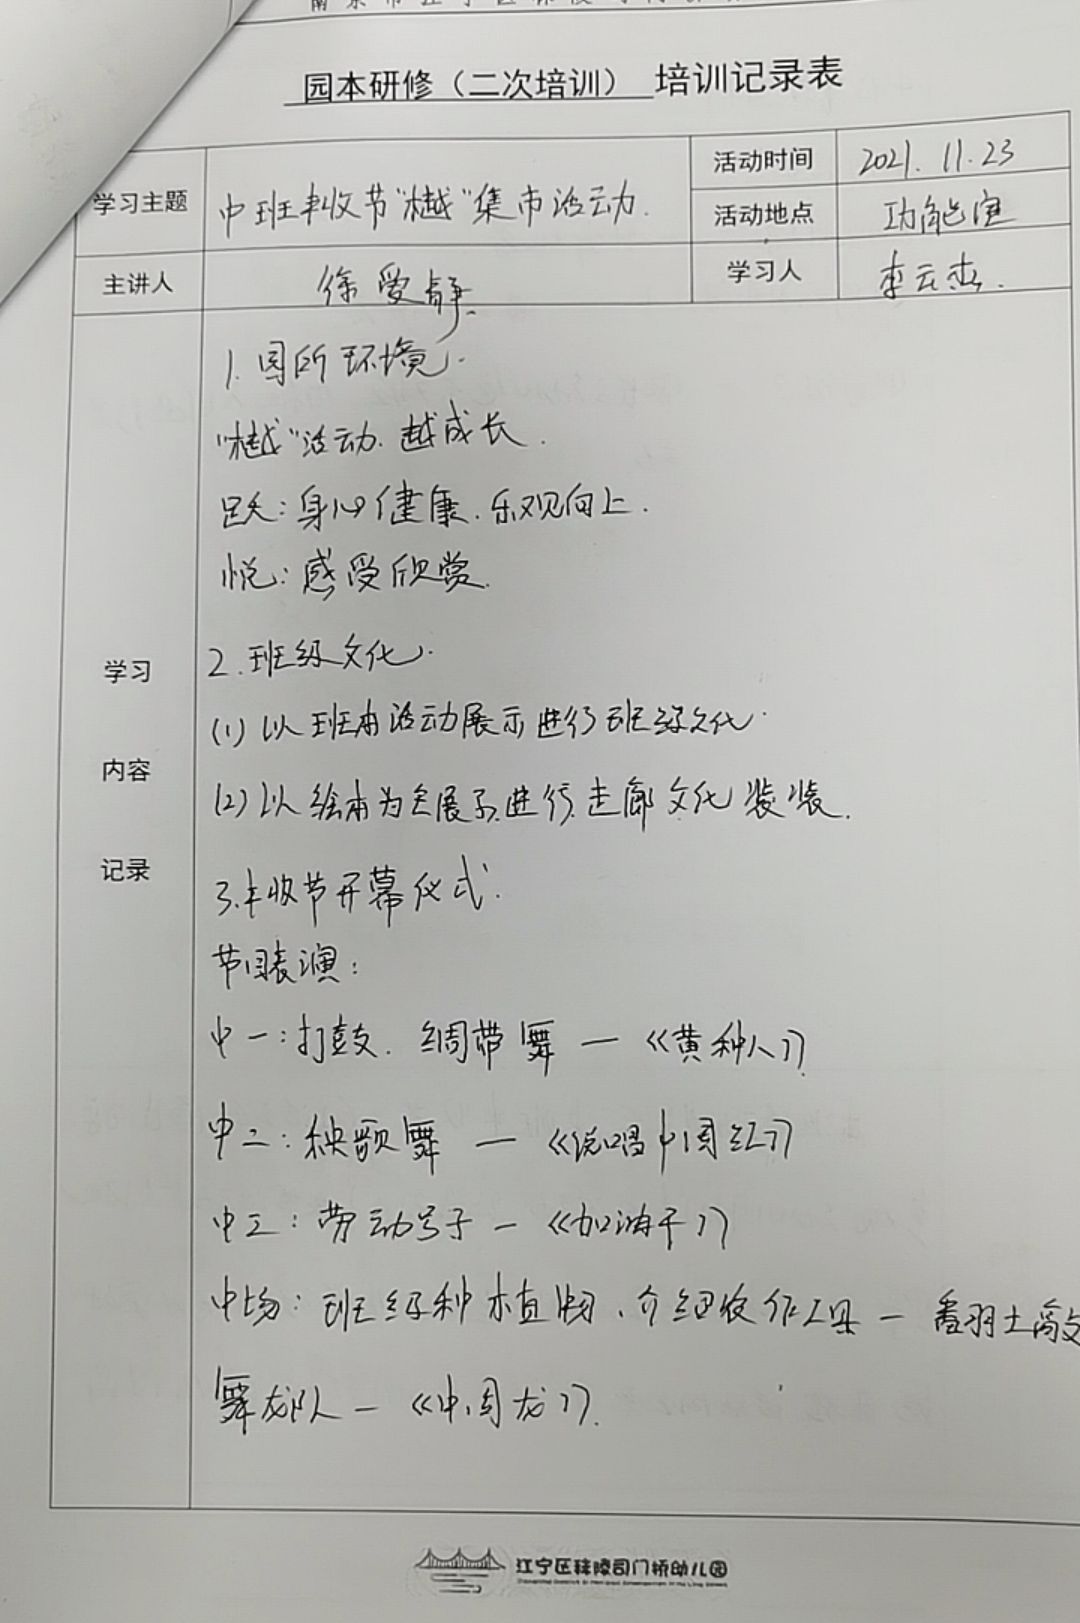 园本研修（二次培训） 培训记录表
学习主题 中班丰收节“樾”集市活动. 活动时间 2021.11.23
活动地点 功能室
主讲人 徐爱静 学习人 李云
1.园所环境.
“樾”活动.越成长.
跃:身心健康.乐观向上.
悦:感受欣赏.
学习内容记录
2.班级文化.
(1)以班本活动展示进行班级文化.
(2)以绘本为主展示,进行走廊文化装装.
3.丰收节开幕仪式.
节目表演:
中一:打鼓.绸带舞—《黄种人》
中二:秧歌舞—《说唱中国红》
中三:劳动号子—《加油干》
中场:班级种植物、介绍农作工具—
舞龙队—《中国龙》.
江宁区秣陵司门桥幼儿园